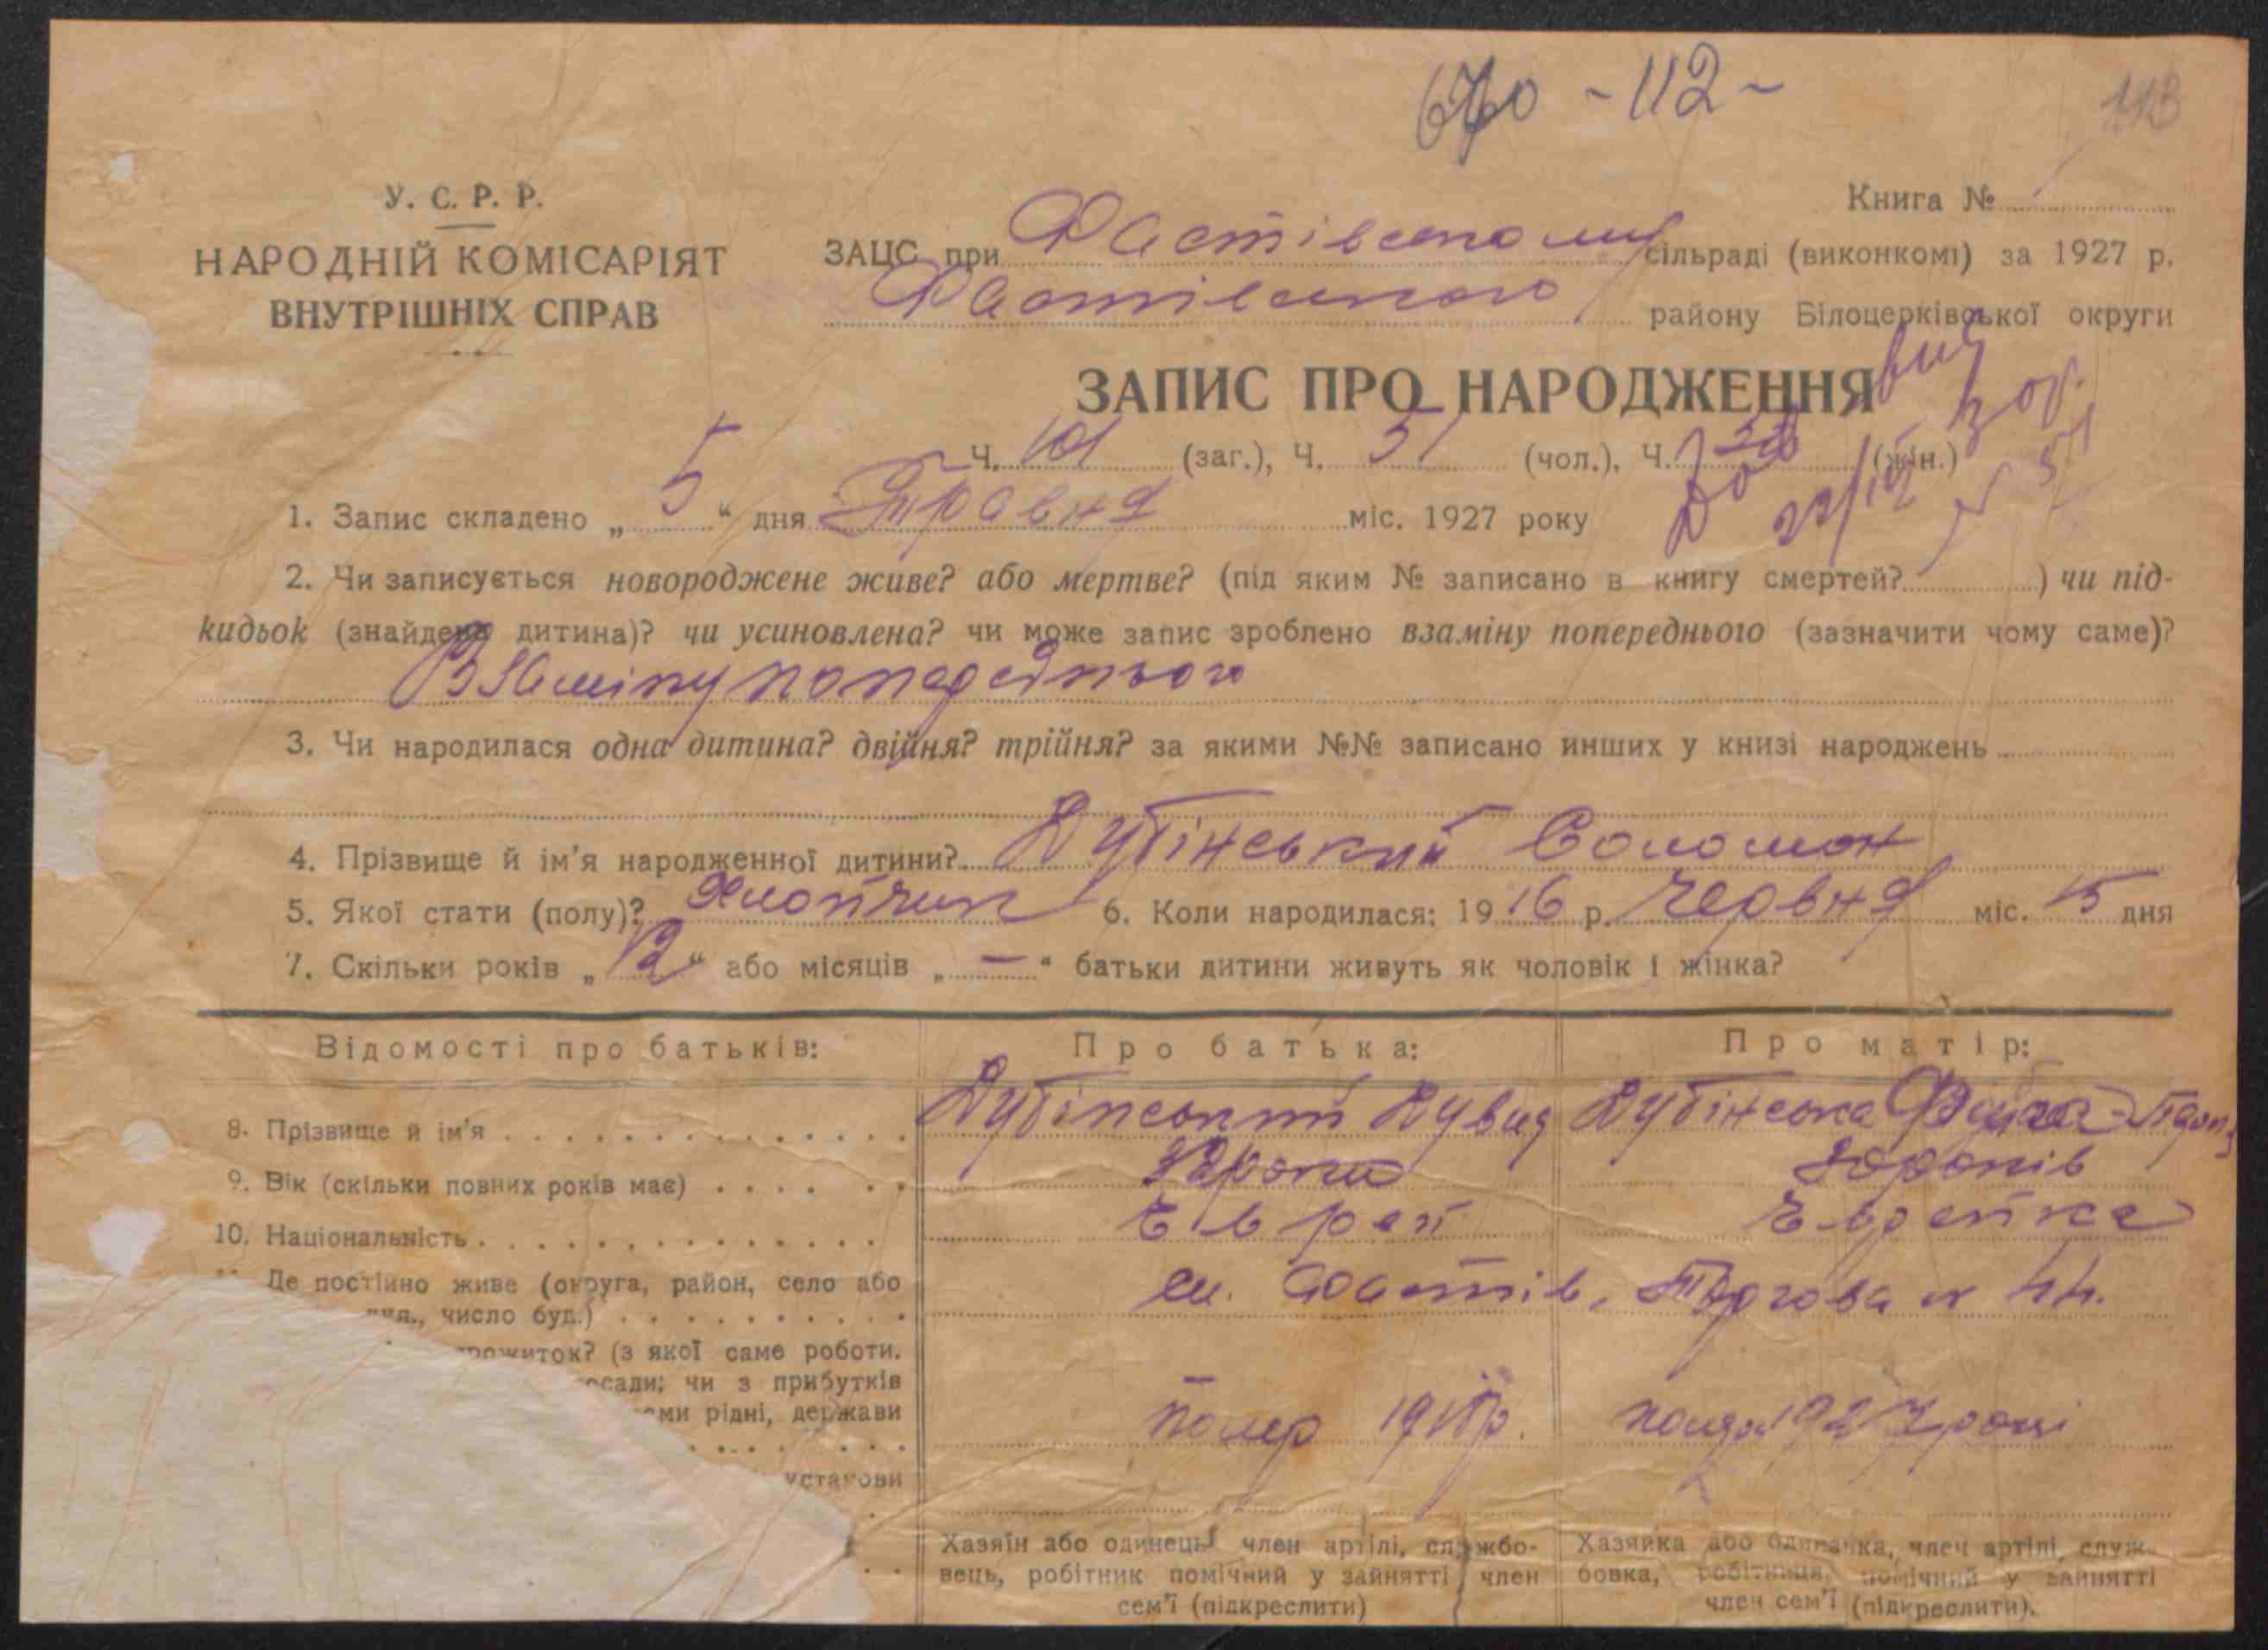 670 - 112 -
113
У. С. Р. Р.
НАРОДНІЙ КОМІСАРІЯТ
ВНУТРІШНІХ СПРАВ
Книга №
ЗАЦС при Фастівському сільраді (виконкомі) за 1927 р.
Фастівського району Білоцерківської округи
ЗАПИС ПРО НАРОДЖЕННЯ
Ч. 101 (заг.), Ч. 51 (чол.), Ч. (жін.)
1. Запис складено „ 5 “ дня Травня міс. 1927 року
2. Чи записується новороджене живе? або мертве? (під яким № записано в книгу смертей? ) чи під-
кидьок (знайдена дитина)? чи усиновлена? чи може запис зроблено взаміну попереднього (зазначити чому саме)?
Взаміну попереднього
3. Чи народилася одна дитина? двійня? трійня? за якими №№ записано инших у книзі народжень
4. Прізвище й ім'я народженної дитини? Дубінський Соломон
5. Якої стати (полу)? Хлопчик 6. Коли народилася: 19 16 р. Червня міс. 15 дня
7. Скільки років „ 12 “ або місяців „ — “ батьки дитини живуть як чоловік і жінка?
Відомості про батьків: Про батька: Про матір:
8. Прізвище й ім'я Дубінський Дувид Дубінська
9. Вік (скільки повних років має) років
10. Національність Еврей Еврейка
Де постійно живе (округа, район, село або
вул., число буд.) м. Фастів, Торгова №
прожиток? (з якої саме роботи.
посади; чи з прибутків
рідні, держави
помер
установи
Хазяїн або одинець член артілі, службо-
вець, робітник помічний у зайнятті член
сем'ї (підкреслити)
Хазяйка або одиначка, член артілі, служ-
бовка, робітниця, помічний у зайнятті
член сем'ї (підкреслити).